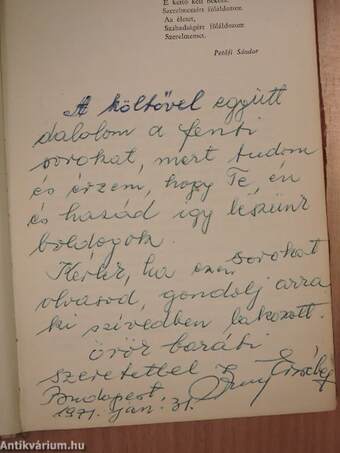 E kettő kell nekem.
Szerelmemért föláldozom
Az életet,
Szabadságért föláldozom
Szerelmemet.
Petőfi Sándor
A költővel együtt
dalolom a fenti
sorokat, mert tudom
és érzem, hogy Te, én
és hazád így leszünk
boldogok.
Kérlek, ha ezen sorokat
olvasod, gondolj arra
ki szívedben lakozott.
Örök baráti
szeretettel Erzsébet
Budapest,
1971. jan. 31.
Antikvárium.hu